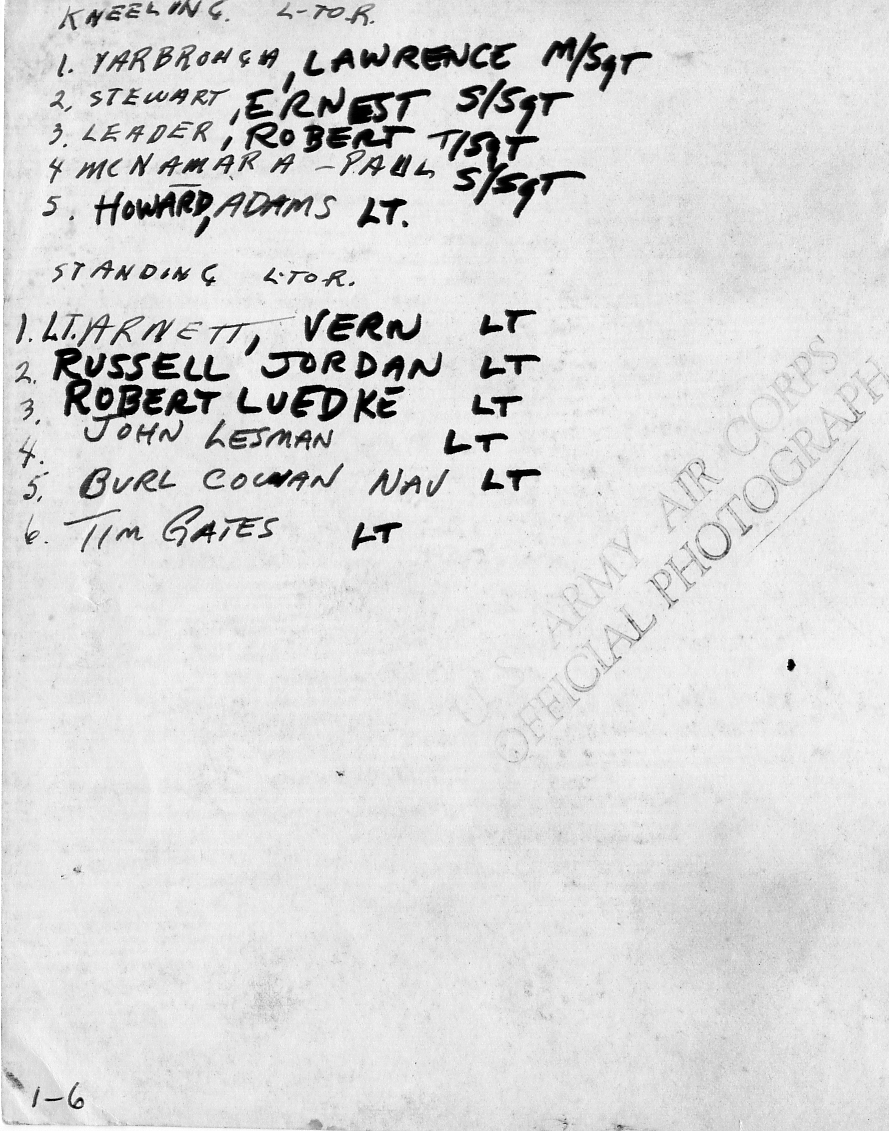 KNEELING. L-TO.R.
1. YARBROUGH, LAWRENCE M/SgT
2, STEWART, ERNEST S/SgT
3. LEADER, ROBERT T/SgT
4 MCNAMARA - PAUL S/SgT
5. HOWARD, ADAMS LT.
STANDING L-TO-R.
1. LT. ARNETT, VERN LT
2. RUSSELL JORDAN LT
3. ROBERT LUEDKE LT
4. JOHN LESMAN LT
5. BURL COWAN NAV LT
6. TIM GATES LT
U.S. ARMY AIR CORPS
OFFICIAL PHOTOGRAPH
1-6